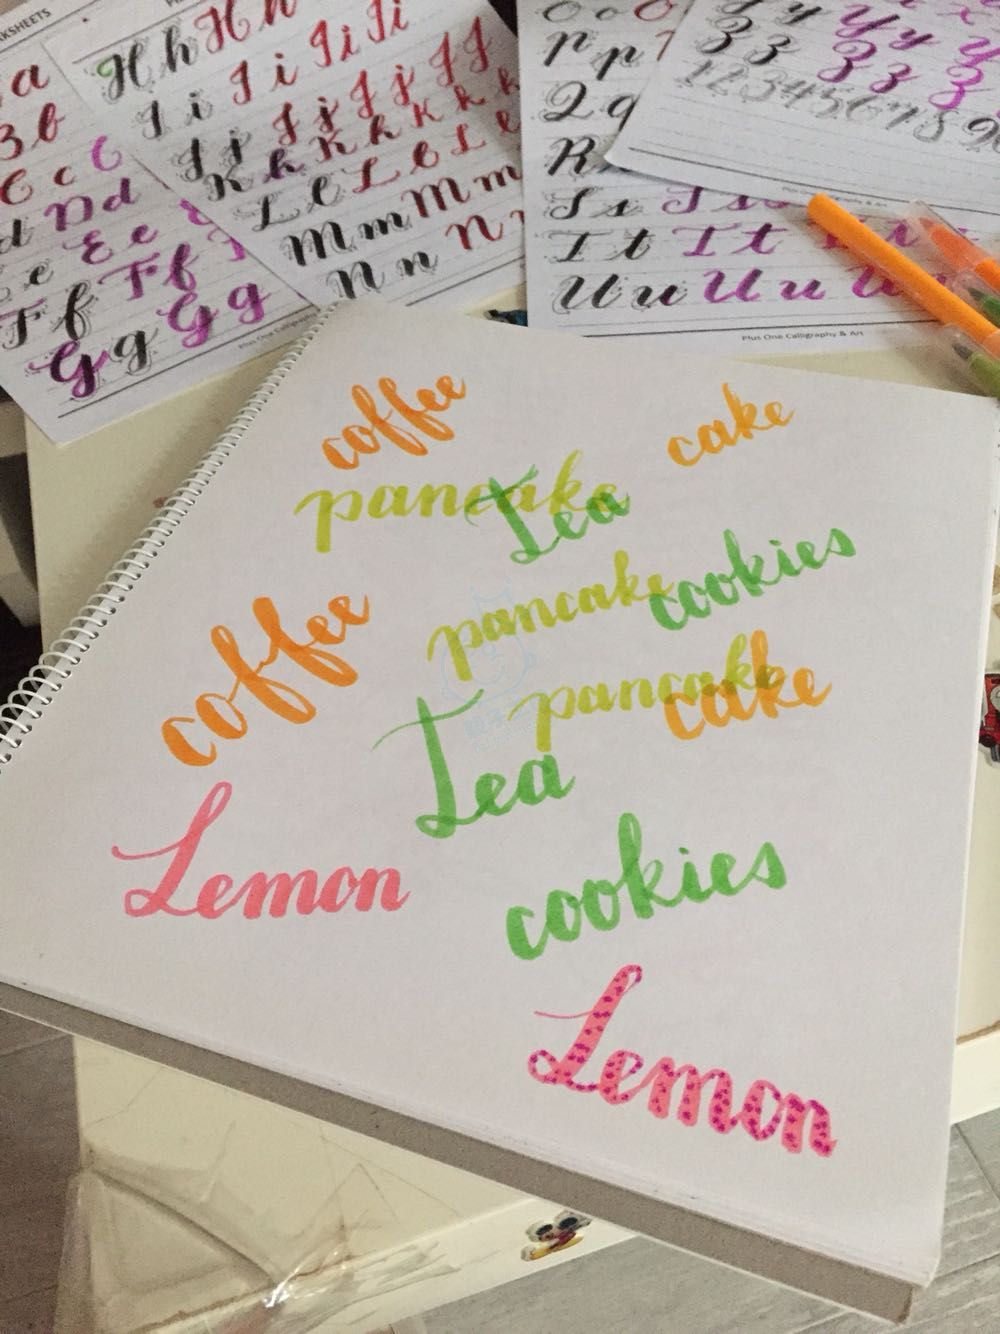 KSHEETS
a
H h H h
B b
I i I i I i
C c C
J j J j J j J J
D d
K k K k K k k
E e E
L l L l L l
F f F f F
M m M m
G g G g
N n N
O o O
P p
Q q
R
S s S s
T t T t
U u U u U
Y y Y y Y
Z z Z z Z
1 2 3 4 5 6 7 8 9
Plus One Calligraphy & Art
coffee
cake
pancake
Tea
cookies
pancake
coffee
pancake
cake
Tea
Lemon
cookies
Lemon